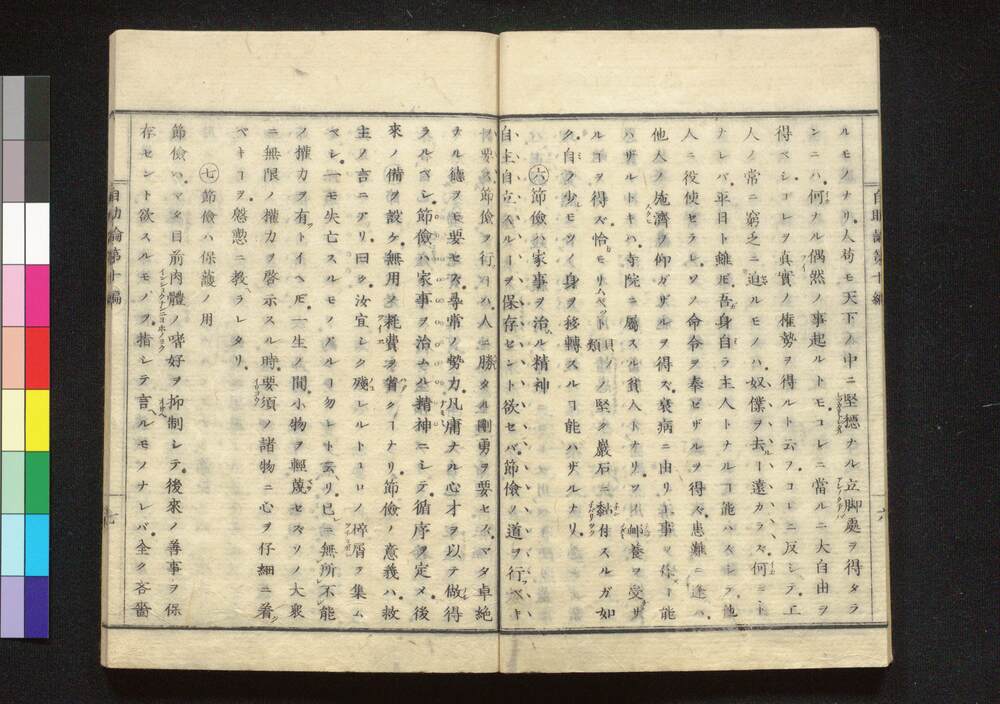 ルモノナリ人苟モ天下ノ中ニ堅穏ナル立脚處ヲ得タラ
ンニハ何ナル偶然ノ事起ルトモコレニ當ルニ大自由ヲ
得ベシコレヲ真實ノ権勢ヲ得ルト云フコレニ反シテ正
人ノ常ニ窮乏ニ迫ルモノハ奴僕ヲ去ルヿ遠カラズ何ニト
ナレバ平日ト雖𪜈吾身自ラ主人トナルヿ能ハズシテ他
人ニ役使セラレソノ命令ヲ奉ゼザルヲ得ズ患難ニ逢ハ
他人ノ施濟ヲ仰ガザルヲ得ズ衰病ニ由リ工事ヲ作ス能
ハザルトキハ寺院ニ屬スル貧人トナリソノ衈養ヲ受ザ
ルヿヲ得ズ恰モリムペット貝類ノノ堅ク巖石ニ黏付スルガ如
ク自ラ少モソノ身ヲ移轉スルヿ能ハザルナリ
㊅節儉ハ家事ヲ治ル精神
自主自立スルヿヲ保存セント欲セバ節儉ノ道ヲ行ベキ
ヿ要ス節儉ヲ行フハ人ニ勝タル剛勇ヲ要セズマタ卓絶
ナル徳ヲモ要セズ尋常ノ勢力凡庸ナル心才ヲ以テ做得
ラルベシ節儉ハ家事ヲ治ムル精神ニシテ循序ヲ定メ後
來ノ備ヲ設ケ無用ノ耗費ヲ省クヿナリ節儉ノ意義ハ救
主ノ言ニアリ曰ク汝宜シク殘レルトコロノ碎屑ヲ集ム
ベシ一モ失亡スルモノアルヿ勿レト云リ已ニ無所不能
ノ權力ヲ有トイヘ𪜈一生ノ間小物ヲ輕蔑セズソノ大衆
ニ無限ノ權力ヲ啓示スル時要須ノ諸物ニ心ヲ仔細ニ着
ベキヿヲ慇懃ニ教ラレタリ
㊆節儉ハ保護ノ用
節儉ハマタ目前肉體ノ嗜好ヲ抑制シテ後來ノ善事ヲ保
存セント欲スルモノヲ指シテ言ルモノナレバ全ク吝嗇
自助論第十編
六
自助論第十編
七